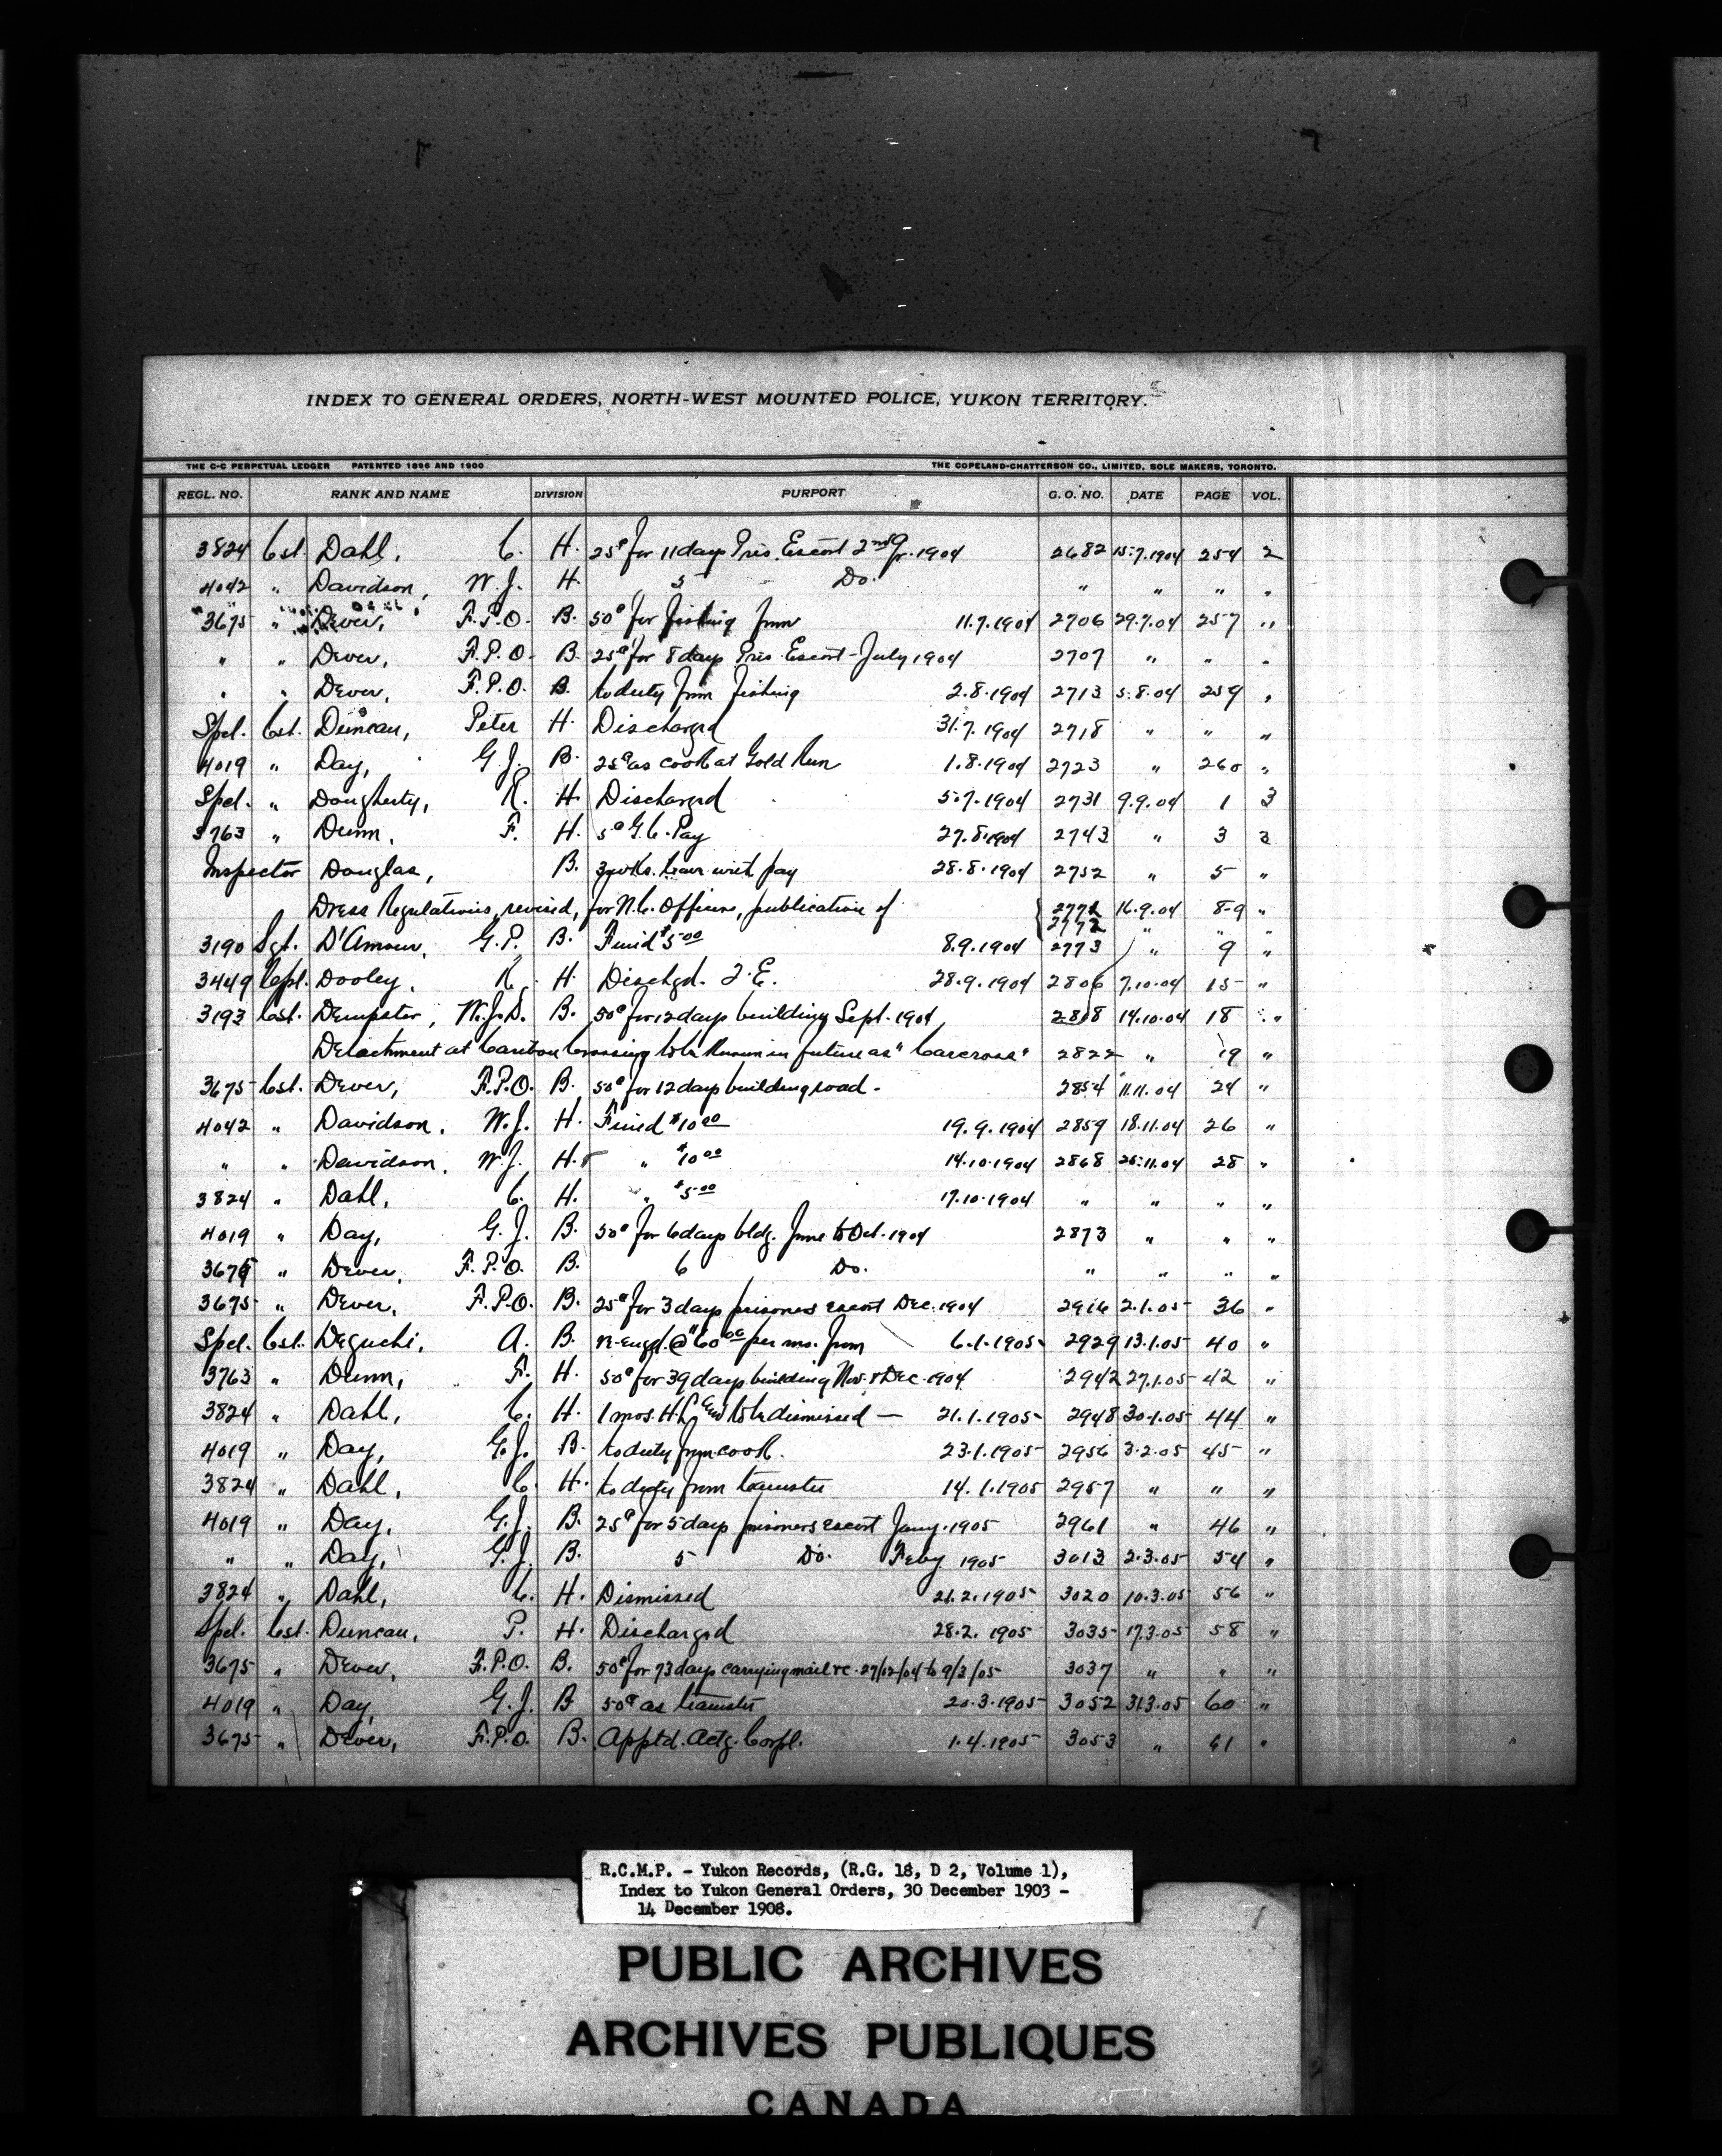 INDEX TO GENERAL ORDERS, NORTH-WEST MOUNTED POLICE, YUKON TERRITORY.
THE C-C PERPETUAL LEDGER PATENTED 1896 AND 1900 THE COPELAND-CHATTERSON CO., LIMITED, SOLE MAKERS, TORONTO.
REGL. NO. RANK AND NAME DIVISION PURPORT G. O. NO. DATE PAGE VOL.
3824 Cst. Dahl, C. H. 25¢ for 11 days Pris. Escort 2nd Qr. 1904 2682 15.7.1904 254 2
4042 " Davidson, W. J. H. 5 Do. " " " "
3675 " Dever, F.P.O. B. 50¢ for fishing from 11.7.1904 2706 29.7.04 257 "
" " Dever, F.P.O. B. 25¢ for 8 days Pris. Escort - July 1904 2707 " " "
" " Dever, F.P.O. B. to duty from fishing 2.8.1904 2713 5.8.04 259 "
Spel. Cst. Duncan, Peter H. Discharged 31.7.1904 2718 " " "
4019 " Day, G.J. B. 25¢ as cook at Gold Run 1.8.1904 2723 " 260 "
Spel. " Dougherty, R. H. Discharged 5.7.1904 2731 9.9.04 1 3
3763 " Dunn, F. H. 5¢ G.C. Pay 27.8.1904 2743 " 3 3
Inspector Douglas, B. 3 wks. leave with pay 28.8.1904 2752 " 5 "
Dress Regulations, revised, for N.C. Officers, publication of 2771 16.9.04 8-9 "
2772 " " "
3190 Sgt. D'Amour, G.P. B. Fined $5.00 8.9.1904 2773 " 9 "
3449 Cpl. Dooley, R. H. Dischgd. T.E. 28.9.1904 2806 7.10.04 15 "
3193 Cst. Dempster, W.J.D. B. 50¢ for 12 days building Sept. 1904 2818 14.10.04 18 "
Detachment at Caribou Crossing to be known in future as "Carcross" 2822 " 19 "
3675 Cst. Dever, F.P.O. B. 50¢ for 12 days building road - 2854 11.11.04 24 "
4042 " Davidson, W.J. H. Fined $10.00 19.9.1904 2859 18.11.04 26 "
" " Davidson, W.J. H. " $10.00 14.10.1904 2868 25.11.04 28 "
3824 " Dahl, C. H. " $5.00 17.10.1904 " " " "
4019 " Day, G.J. B. 50¢ for 6 days bldg. June to Oct. 1904 2873 " " "
3675 " Dever, F.P.O. B. 6 Do. " " " "
3675 " Dever, F.P.O. B. 25¢ for 3 days prisoners escort Dec. 1904 2916 2.1.05 36 "
Spel. Cst. Deguchi, A. B. re-engd. @ $60.00 per mo. from 6.1.1905 2929 13.1.05 40 "
3763 " Dunn, F. H. 50¢ for 39 days building Nov. & Dec. 1904 2942 27.1.05 42 "
3824 " Dahl, C. H. 1 mos. H.L. and to be dismissed — 21.1.1905 2948 30.1.05 44 "
4019 " Day, G.J. B. to duty from cook. 23.1.1905 2956 3.2.05 45 "
3824 " Dahl, C. H. to duty from teamster 14.1.1905 2957 " " "
4019 " Day, G.J. B. 25¢ for 5 days prisoners escort Jany. 1905 2961 " 46 "
" " Day, G.J. B. 5 Do. Feby 1905 3013 2.3.05 54 "
3824 " Dahl, C. H. Dismissed 21.2.1905 3020 10.3.05 56 "
Spel. Cst. Duncan, P. H. Discharged 28.2.1905 3035 17.3.05 58 "
3675 " Dever, F.P.O. B. 50¢ for 73 days carrying mail &c. 27/12/04 to 9/3/05 3037 " " "
4019 " Day, G.J. B 50¢ as teamster 20.3.1905 3052 31.3.05 60 "
3675 " Dever, F.P.O. B. Apptd. Actg. Corpl. 1.4.1905 3053 " 61 "
R.C.M.P. - Yukon Records, (R.G. 18, D 2, Volume 1),
Index to Yukon General Orders, 30 December 1903 -
14 December 1908.
PUBLIC ARCHIVES
ARCHIVES PUBLIQUES
CANADA